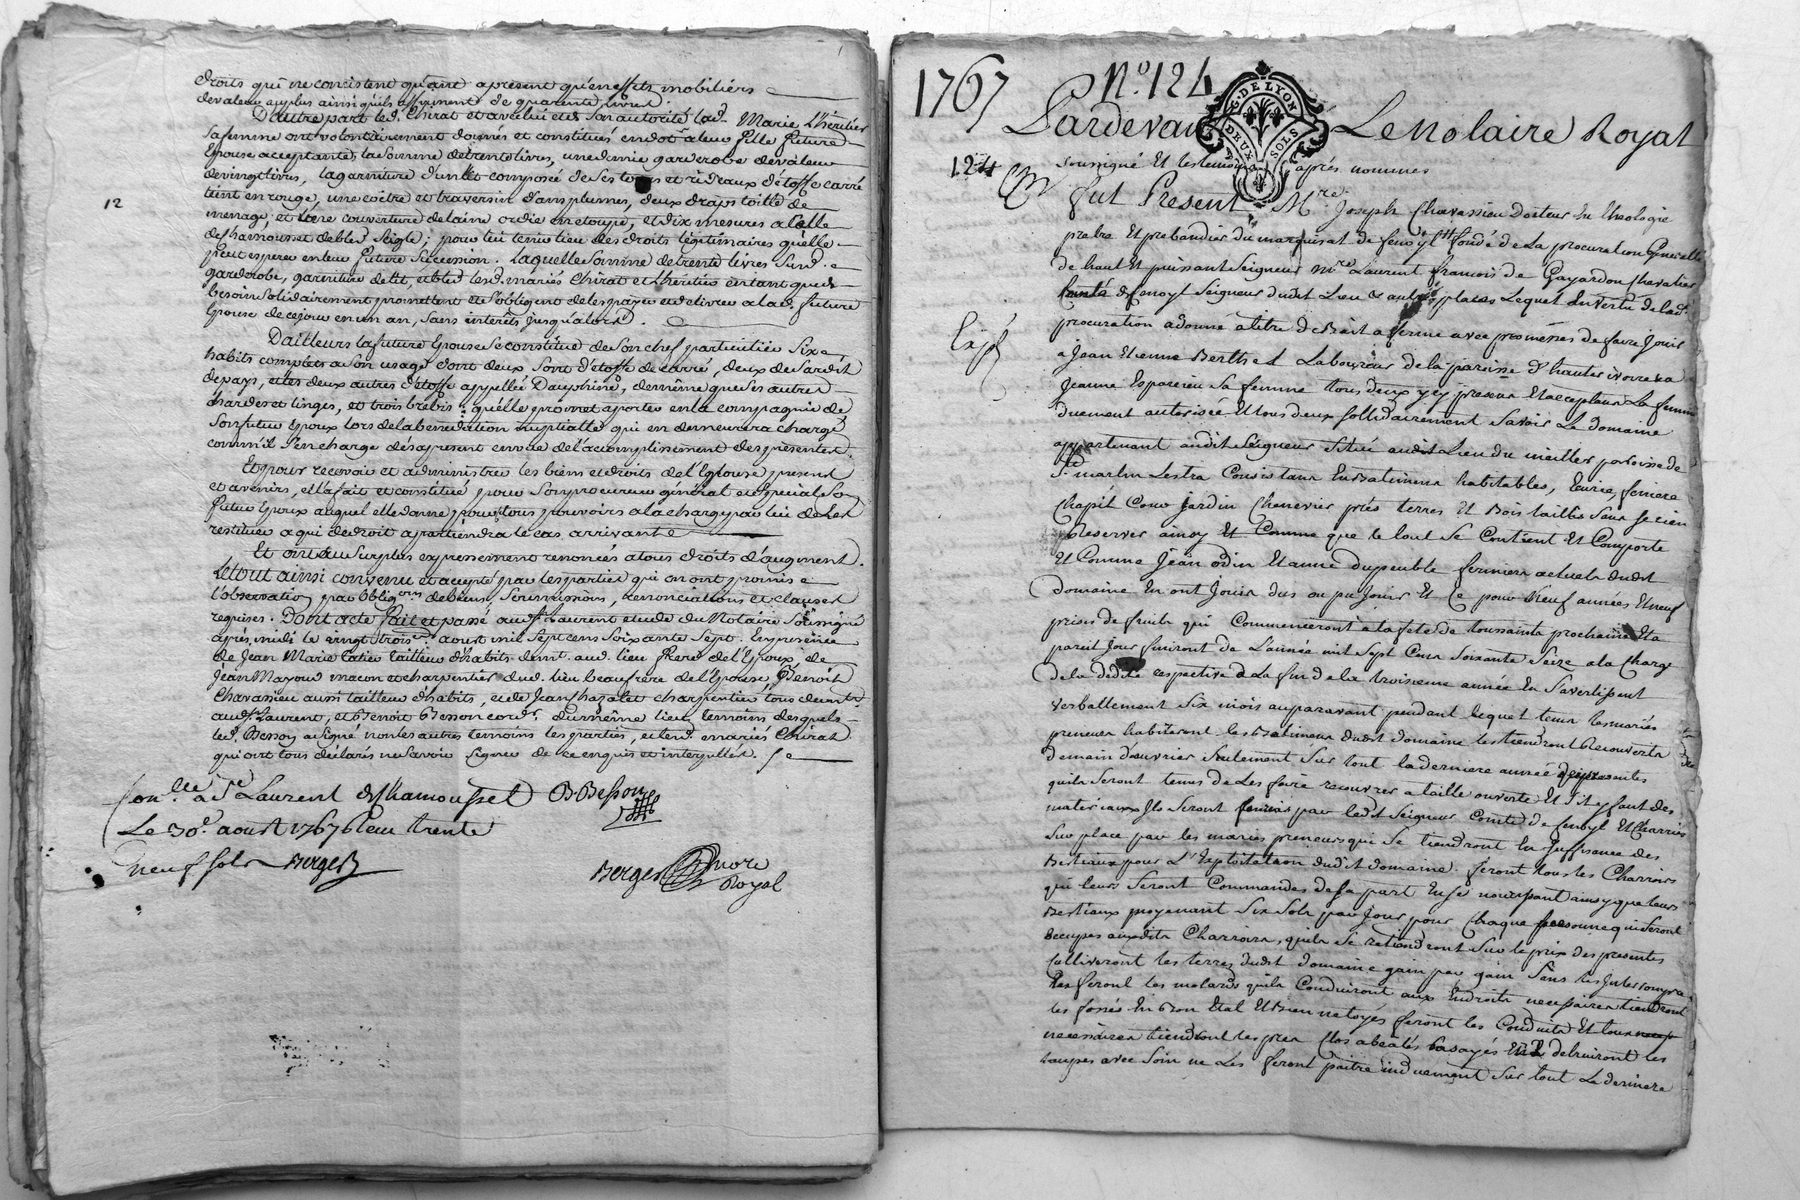 droits qui ne concistent quant apresent qu'en effets mobiliers
devaleur auplus ainsi qu'ils affirment de quarante livres.
D'autre part led. Chirat et avec lui et de son autorité lad. Marie L'héritier
safemme ont volontairement donnés et constitués en dot a leur fille future
Epouse acceptante, la somme de trente livres, une demie garderobe devaleur
devingt livres, la garniture d'un lit composée de ses tours et rideaux d'étoffe carré
teint en rouge, une coitre et traversin d'amplumes, deux draps toille de
menage, et une couverture de laine ordie en etoupe, et dix mesures a celle
de chamousset de bled seigle; pour lui tenir lieu des droits légitimaires qu'elle
peut esperer en leur future succession. Laquelle somme de trente livres, susd.
garderobe, garniture de lit, et bled lesd. mariés Chirat et L'héritier entant que de
besoin solidairement promettent et s'obligent de les payer et delivrer a lad. future
Epouse de ce jour en un an, sans interêts jusqu'alors.
D'ailleurs la future Epouse se constitue de son chef particulier six
habits complets a son usage dont deux sont d'étoffe de carré, deux de sardit
de pays, et les deux autres d'étoffe appellée Dauphine, de même que ses autres
hardes et linges, et trois brebis; qu'elle promet aporter en la compagnie de
son futur Epoux lors de la benediction nuptialle qui en demeurera chargé
comm'il s'en charge dès apresent en vüe de l'accomplissement des presentes.
Et pour recevoir et administrer les biens et droits de l'Epouse present
et avenirs, ell'a fait et constitué pour son procureur général et special son
futur Epoux auquel elle donne pour tous pouvoirs a la charge par lui de les
restituer a qui de droit apartiendra le cas arrivant
Et ont au surplus expressement renoncés a tous droits d'augment.
Le tout ainsi convenu et accepté par les parties qui en ont promis
l'observation par obligons de biens, soummissions, renonciations et clauses
requises. Dont acte fait et passé aud. St Laurent etude du Notaire soussigné
après midi le vingt trois aoust mil sept cens soixante sept. En presence
de Jean Marie tailleur d'habits demt. aud. lieu frere de l'Epoux, de
Jean Mayoud macon et charpentier dud. lieu beaufrere de l'Epouse, Benoit
Chavassieu aussi tailleur d'habits, et de Jean chazalet charpentier tous demts.
aud. St Laurent, et Benoit Besson cordr. du même lieu temoins desquels
led. Besson a signé non les autres temoins les parties, et lesd. mariés Chirat
qui ont tous déclarés ne savoir signer de ce enquis et interpellés.
12
Conllé à St Laurent de Chamousset
Le 30e. aoust 1767 Reçu trente
neuf sols Berger
B. Besson
Berger nore
Royal
1767 No. 124
G. DE LYON
DEUX SOLS
Pardevant Le Notaire Royal
124
soussigné Et les temoins après nommés
fut Présent Mre. Joseph Chavassieu Docteur En theologie
pretre Et prebandier du marquisat de fenoyl fondé de La procuration Generalle
de haut Et puissant Seigneur Mre Laurent françois de Gayardon Chevalier
Comte de fenoyl Seigneur dudit Lieu & autres places Lequel en vertu de lad.
procuration a donné a titre de Bail a ferme avec promesses de faire Jouir
Expé
a Jean Etienne Berthet Laboureur de la paroisse d'hauterivoire &a
Jeanne Esparcieu sa femme tous deux y cy presens Et acceptans La femme
duement autorisée Et tous deux sollidairement Savoir Le Domaine
appartenant audit Seigneur Situé audit Lieu du mieillet paroisse de
St. martin Lestra Consistans En Batimens habitables, Ecurie, feniere
Chapit Cour Jardin Chenevier prés terres Et Bois taillis Sans se rien
Reserver ainsy Et Comme que le tout Se Contient Et Comporte
Et Comme Jean odin Et anne dupeuble fermiers actuels dudit
domaine En ont Jouis dus ou pu Jouir Et Ce pour Neuf années Et neuf
prises de fruits qui Commenceront a la fete de toussaints prochaine Et a
pareil Jour finiront de L'année mil Sept Cens Soixante Seize a la Charge
de la dedite respective a La fin de la troisieme année En S'avertissant
verballement Six mois auparavant pendant lequel tems les mariés
preneurs habiteront les Batimens dudit domaine les tiendront Recouverts
de main d'ouvrier Seulement Sur tout la derniere année des presentes
quils Seront tenus de Les faire recouvrer a taille ouverte Et S'il y faut des
materiaux Ils Seront fournis par ledit Seigneur Comte de fenoyl Et Charriés
Sur place par les mariés preneurs qui Se tiendront En Suffisance des
Bestiaux pour L'Exploitation dudit domaine. feront tous les Charrois
qui leurs Seront Commandés de Sa part En Se nourrissant ainsy que leurs
Bestiaux moyenant Six Sols par Jour pour Chaque personne qui Seront
occupés auxdits Charrois, quils Se retiendront Sur le prix des presentes
Cultiveront les terres dudit domaine gain par gain Sans les Interrompre
les feront les molards quils Conduiront aux Endroits necessaires tiendront
les fossés En Bon Etat Et Bien netoyés feront les Conduits Et tous
necessaires tiendront les prés Clos Rasayés Et detruiront les
taupes avec Soin ne Les feront paitre induement Sur tout La derniere